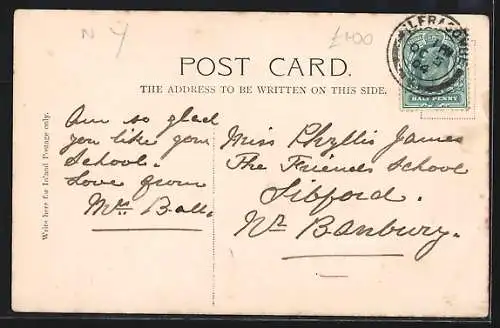 N Y
£4.00
ILFRACOMBE
POST CARD.
THE ADDRESS TO BE WRITTEN ON THIS SIDE.
HALF PENNY
Write here for Inland Postage only.
Am so glad
you like your
School.
Love from
Mrs Ball.
Miss Phyllis James
The Friends School
Sibford.
Nr Banbury.